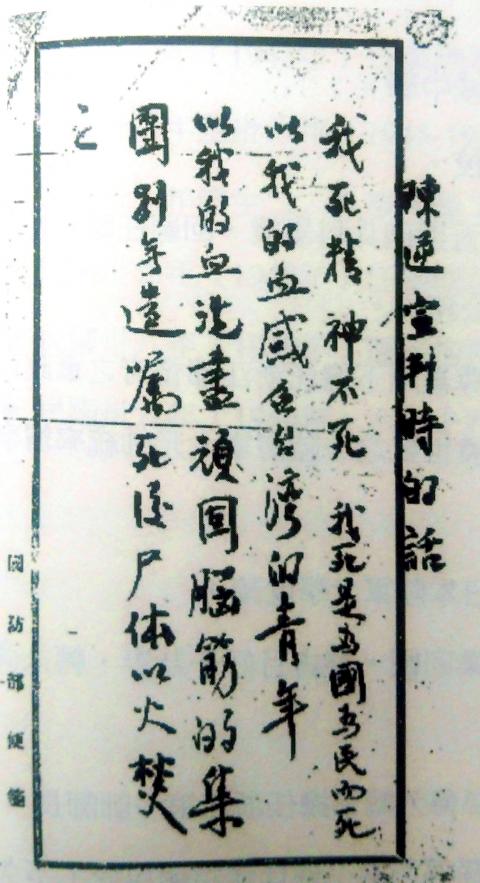 陳逆宣判時的話
我死精神不死 我死是為國為民而死
以我的血感召台灣的青年
以我的血洗盡頑固腦筋的集
團別無遺囑死後尸体以火焚
之
國防部便箋